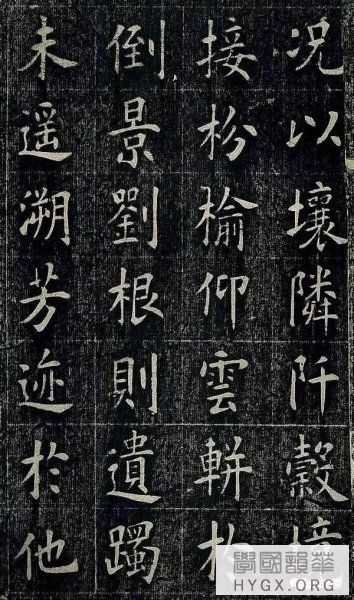 况以壤隣阡境
接枌榆仰雲軿於
倒景劉根則遺躅
未遥溯芳迹於他
華韻國學
HYGX.ORG